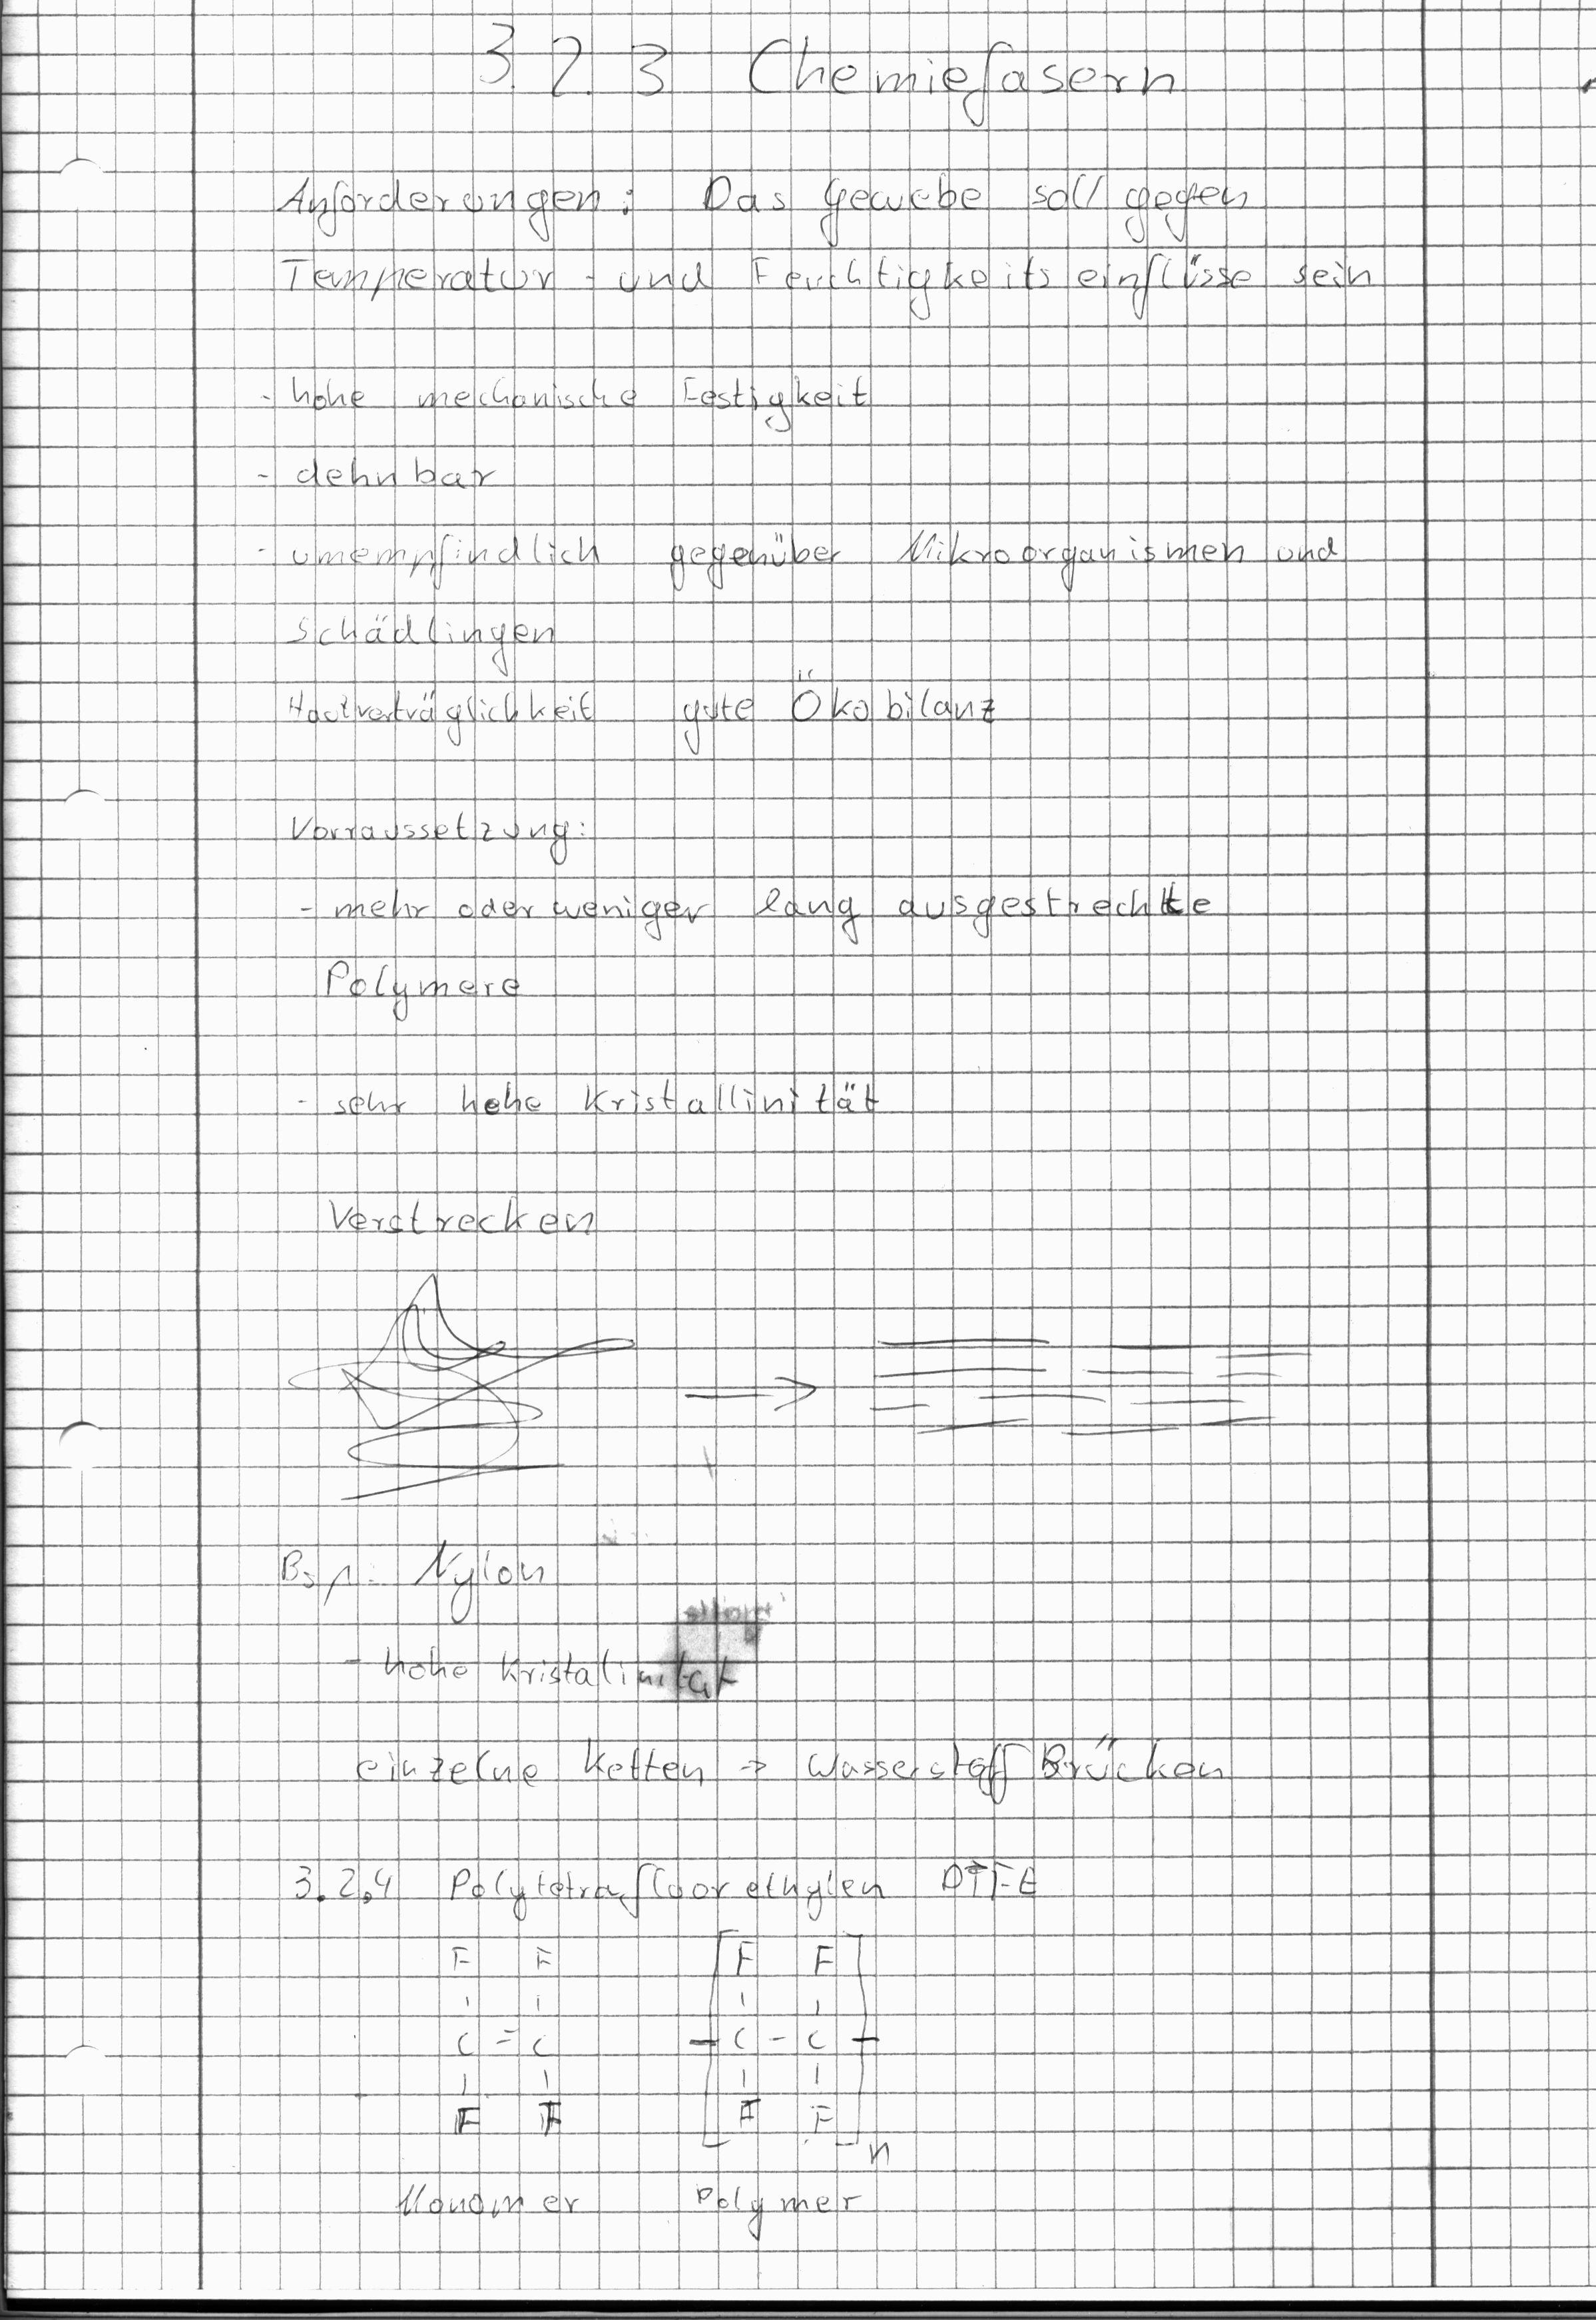 3.2.3 Chemiefasern
Anforderungen: Das Gewebe soll gegen
Temperatur- und Feuchtigkeitseinflüsse sein
- hohe mechanische Festigkeit
- dehnbar
- umempfindlich gegenüber Mikroorganismen und
Schädlingen
Hautverträglichkeit gute Ökobilanz
Vorraussetzung:
- mehr oder weniger lang ausgestreckte
Polymere
- sehr hohe Kristallinität
Verstrecken
Bsp: Nylon
- hohe Kristalinität
einzelne Ketten → Wasserstoff Brücken
3.2.4 Polytetrafluorethylen PTFE
F F [F F]
C = C - C - C -
F F F F n
Monomer Polymer